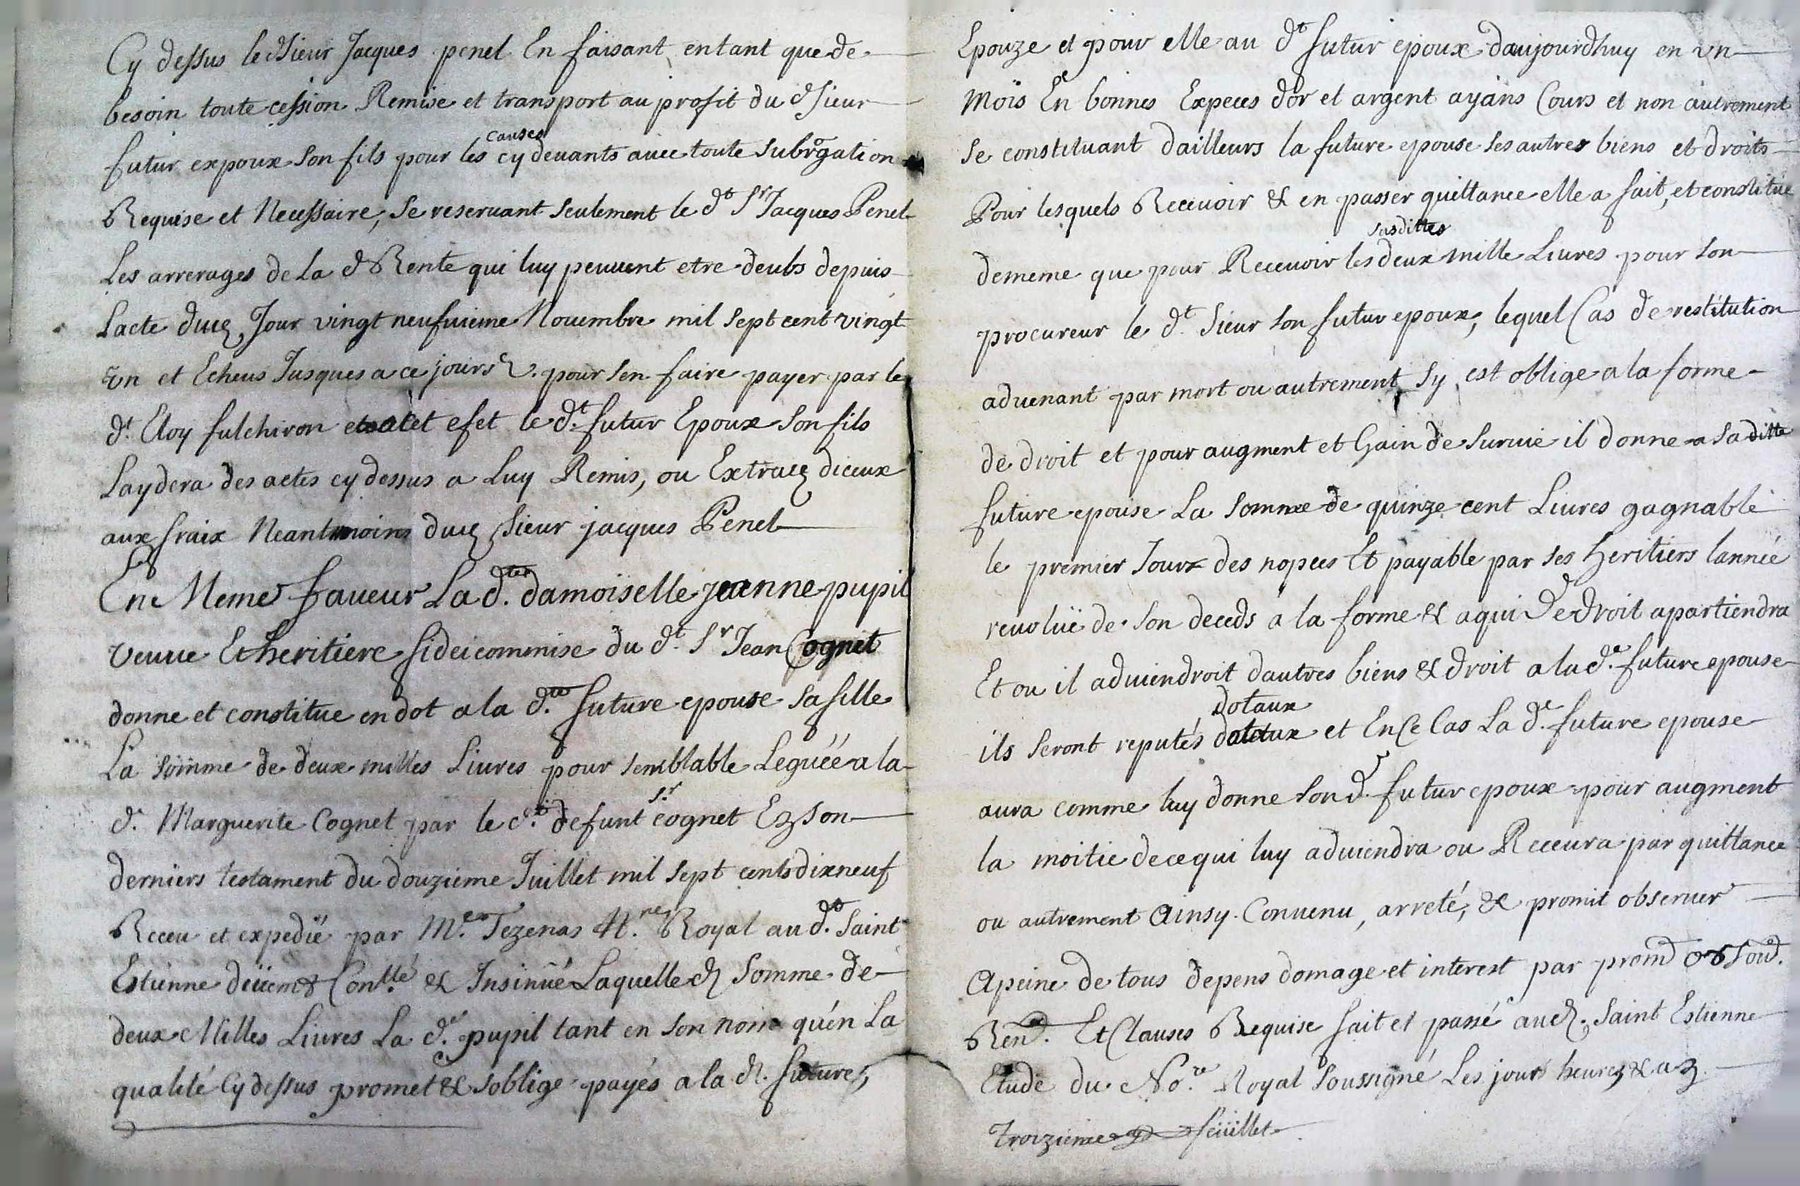 Cy dessus le d sieur Jacques penel En faisant entant que de
besoin toute cession Remise et transport au profit du d sieur
causes
futur expoux son fils pour les cy devants avec toute subrogation
Requise et Necessaire, se reservant seulement le dt Sr Jacques Penel
Les arrerages de La d Rente qui luy peuvent etre deubs depuis
Lacte dud Jour vingt neufvieme Novembre mil sept cent vingt
un et Echeus Jusques a ce jour pour sen faire payer par le
dt Eloy fulchiron et efet le dt futur Epoux son fils
Laydera des actes cy dessus a Luy Remis, ou Extraq diceux
aux fraix Neantmoins dud Sieur jacques Penel
En Meme faveur La d. damoiselle jeanne pupil
veuve Et heritiere fideicommise du dt Sr Jean Cognet
donne et constitue en dot a la dte future epouse sa fille
La somme de deux milles Livres pour semblable Leguée a la
Sr
d. Marguerite Cognet par le dt defunt cognet En son
derniers testament du douzieme Juillet mil sept cents dixneuf
Receu et expedié par Me Tezenas Nre Royal au dt Saint
Estienne Con.lé & Insinué Laquelle d Somme de
deux Milles Livres La d. pupil tant en son nom qu'en La
qualité Cy dessus promet & soblige payés a la d. future,
Epouze et pour elle au dt futur epoux daujourdhuy en un
Mois En bonnes Expeces dor et argent ayans Cours et non autrement
se constituant dailleurs la future epouse ses autres biens et droits
Pour lesquels Recevoir & en passer quittance elle a fait, et constitué
susdittes
dememe que pour Recevoir les deux mille Livres pour son
procureur le dt Sieur son futur epoux, lequel Cas de restitution
advenant par mort ou autrement sy est oblige a la forme
de droit et pour augment et Gain de survie il donne a sa ditte
future epouse La somme de quinze cent Livres gagnable
le premier Jour des nopces Et payable par ses heritiers lannée
revolüe de son deceds a la forme & a qui de droit apartiendra
Et ou il adviendroit dautres biens & droit a la de future epouse
dotaux
ils seront reputés dotaux et En Ce Cas La de future epouse
aura comme luy donne son d. futur epoux pour augment
la moitie de ce qui luy adviendra ou Recevra par quittance
ou autrement Ainsy Convenu, arreté, & promit observer
Apeine de tous depens domage et interest par prom̄ obsoud.
Ren̄. Et Clauses Requise fait et passé aud. Saint Estienne
Etude du No.re Royal Soussigné Les jour heures & a
Troizieme feüillet